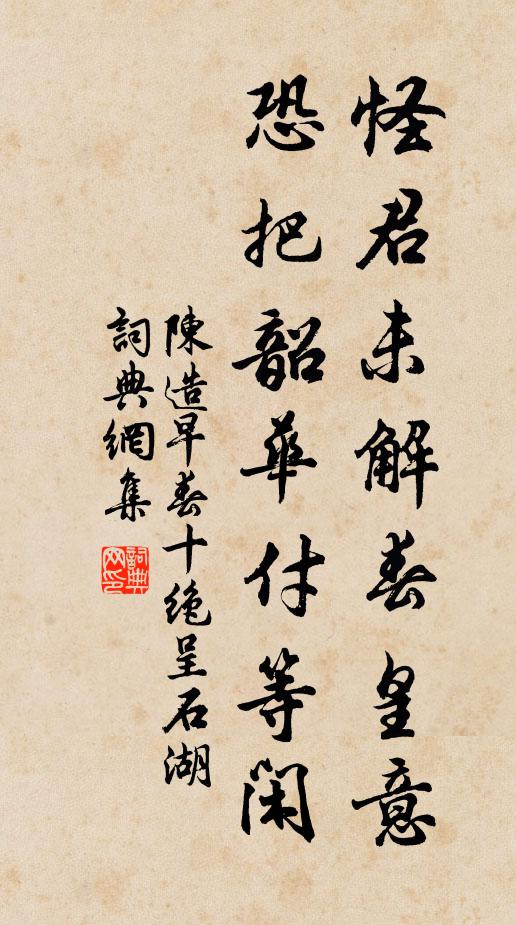 怪君未解春皇意
恐把韶華付等閑
陳造早春十絕呈石湖
詞典網集
詞典網印